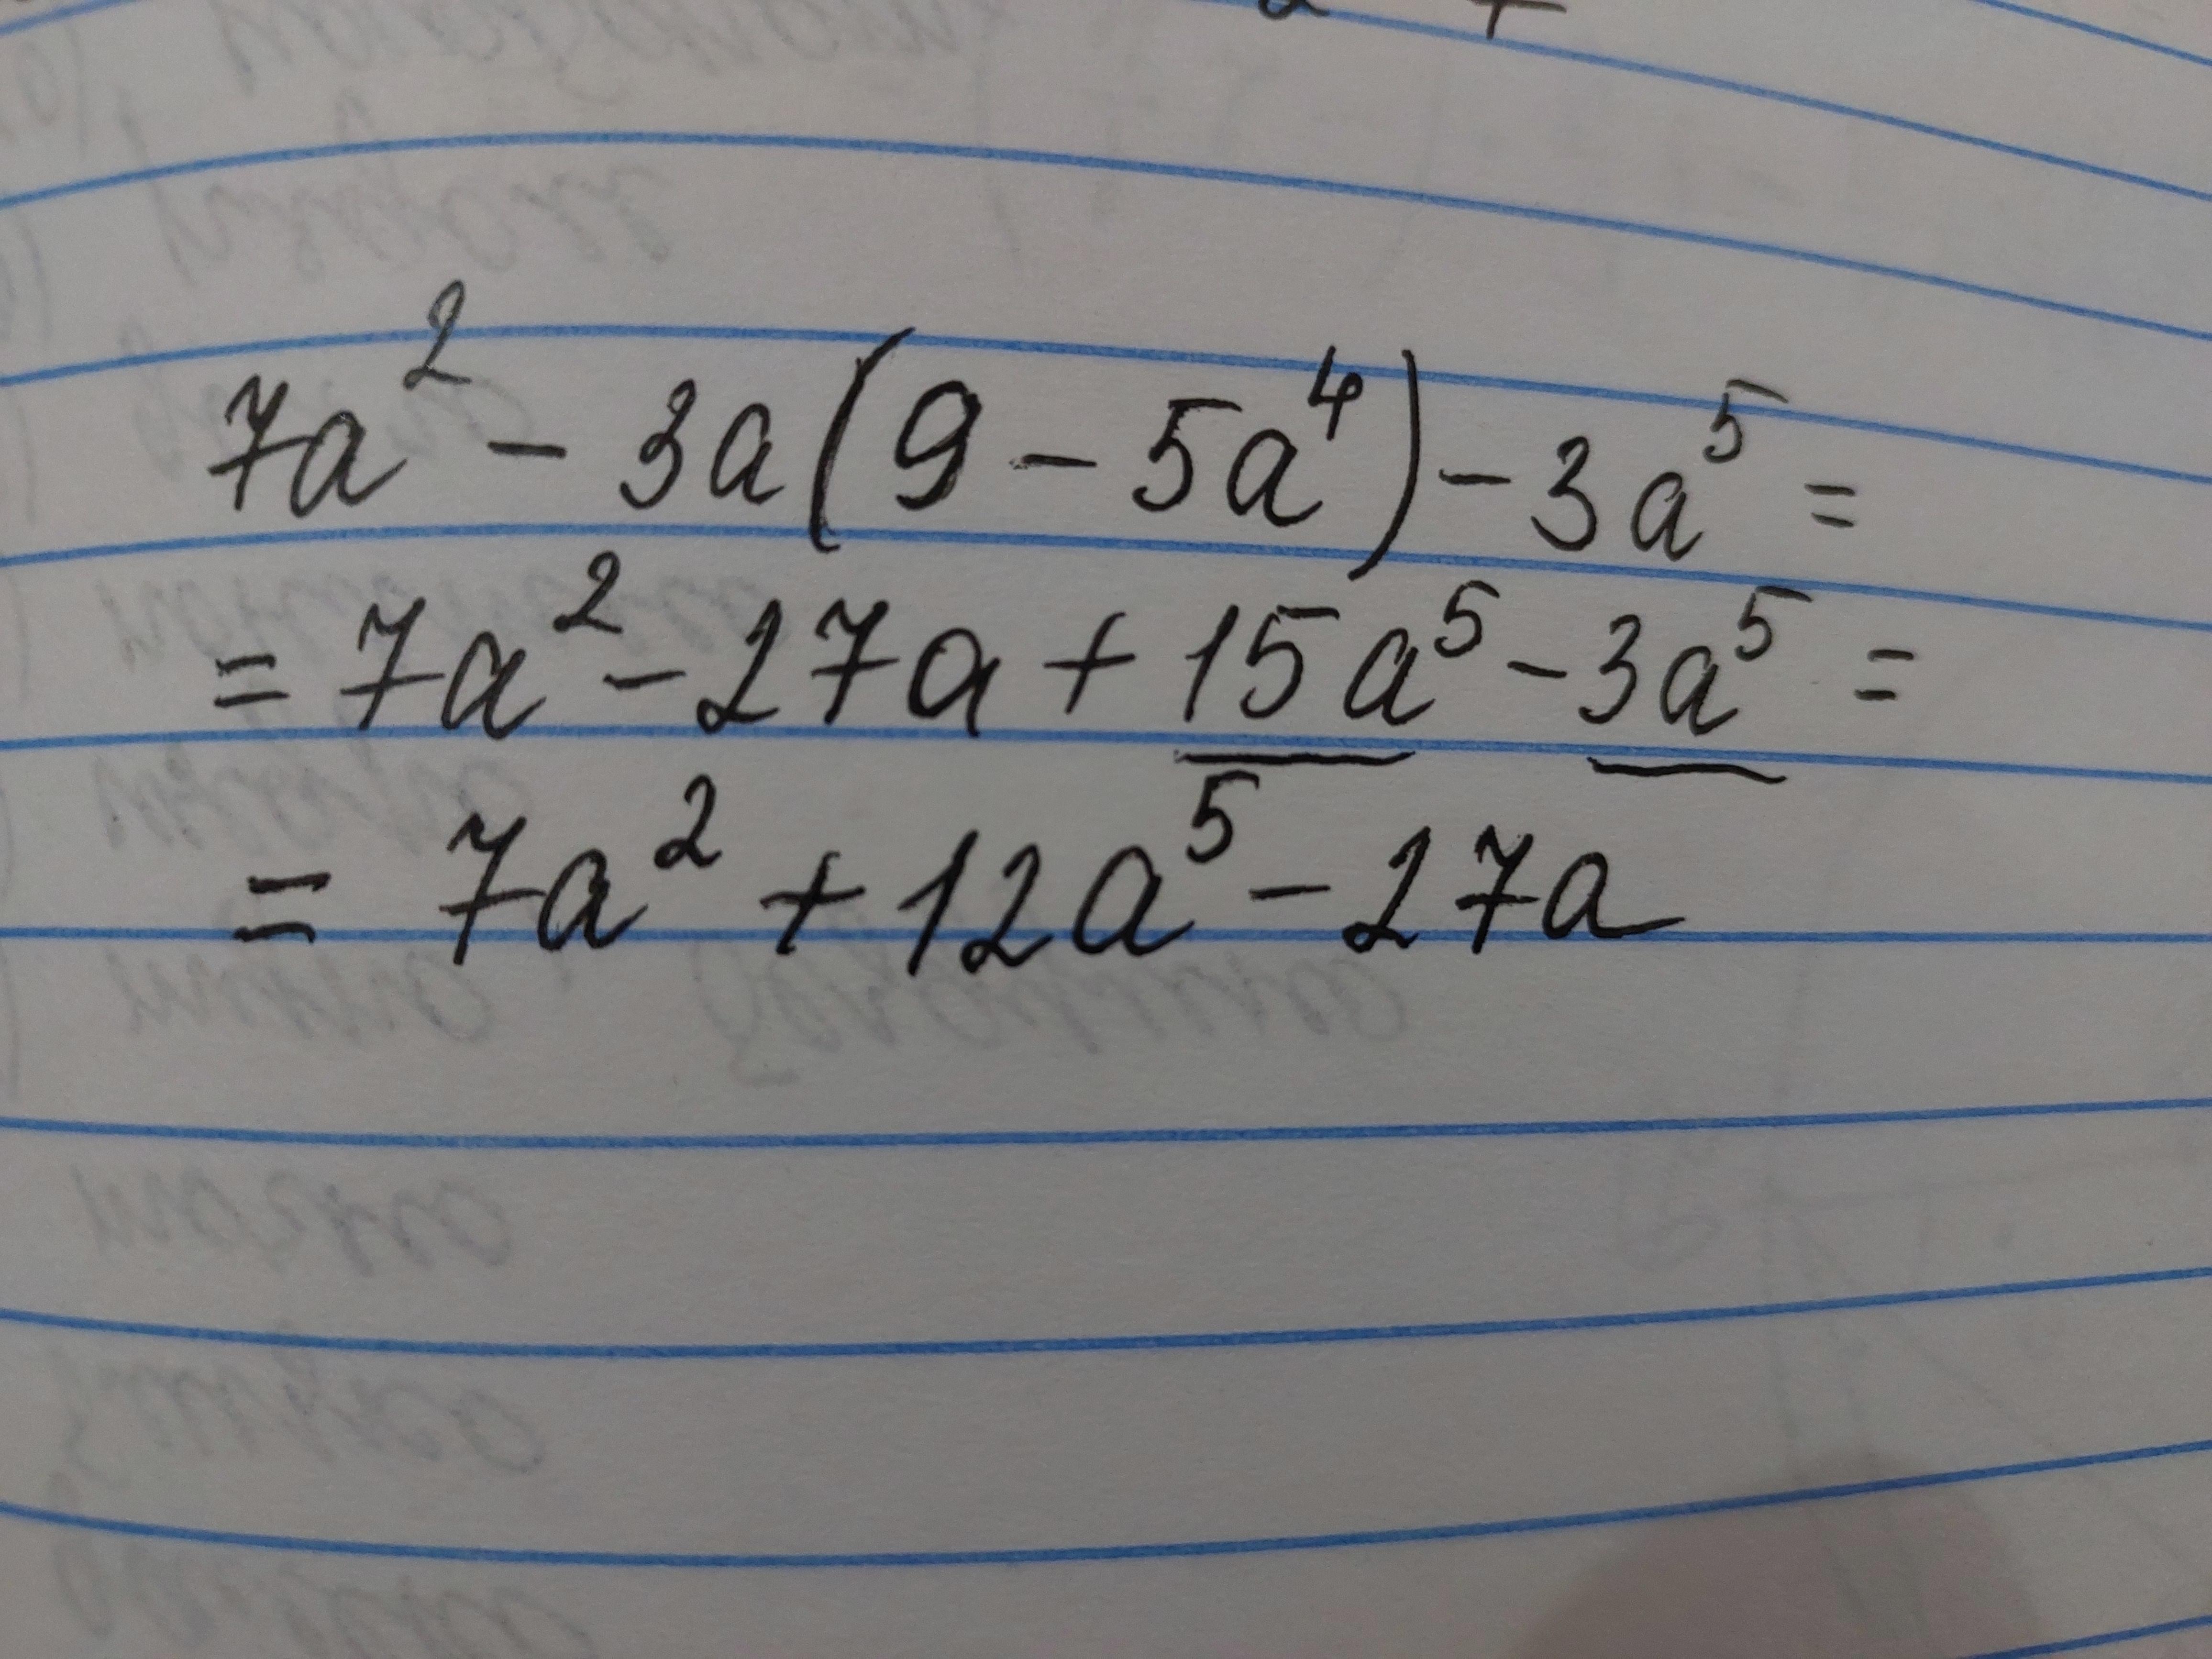 7a² - 3a(9 - 5a⁴) - 3a⁵ =
= 7a² - 27a + 15a⁵ - 3a⁵ =
= 7a² + 12a⁵ - 27a